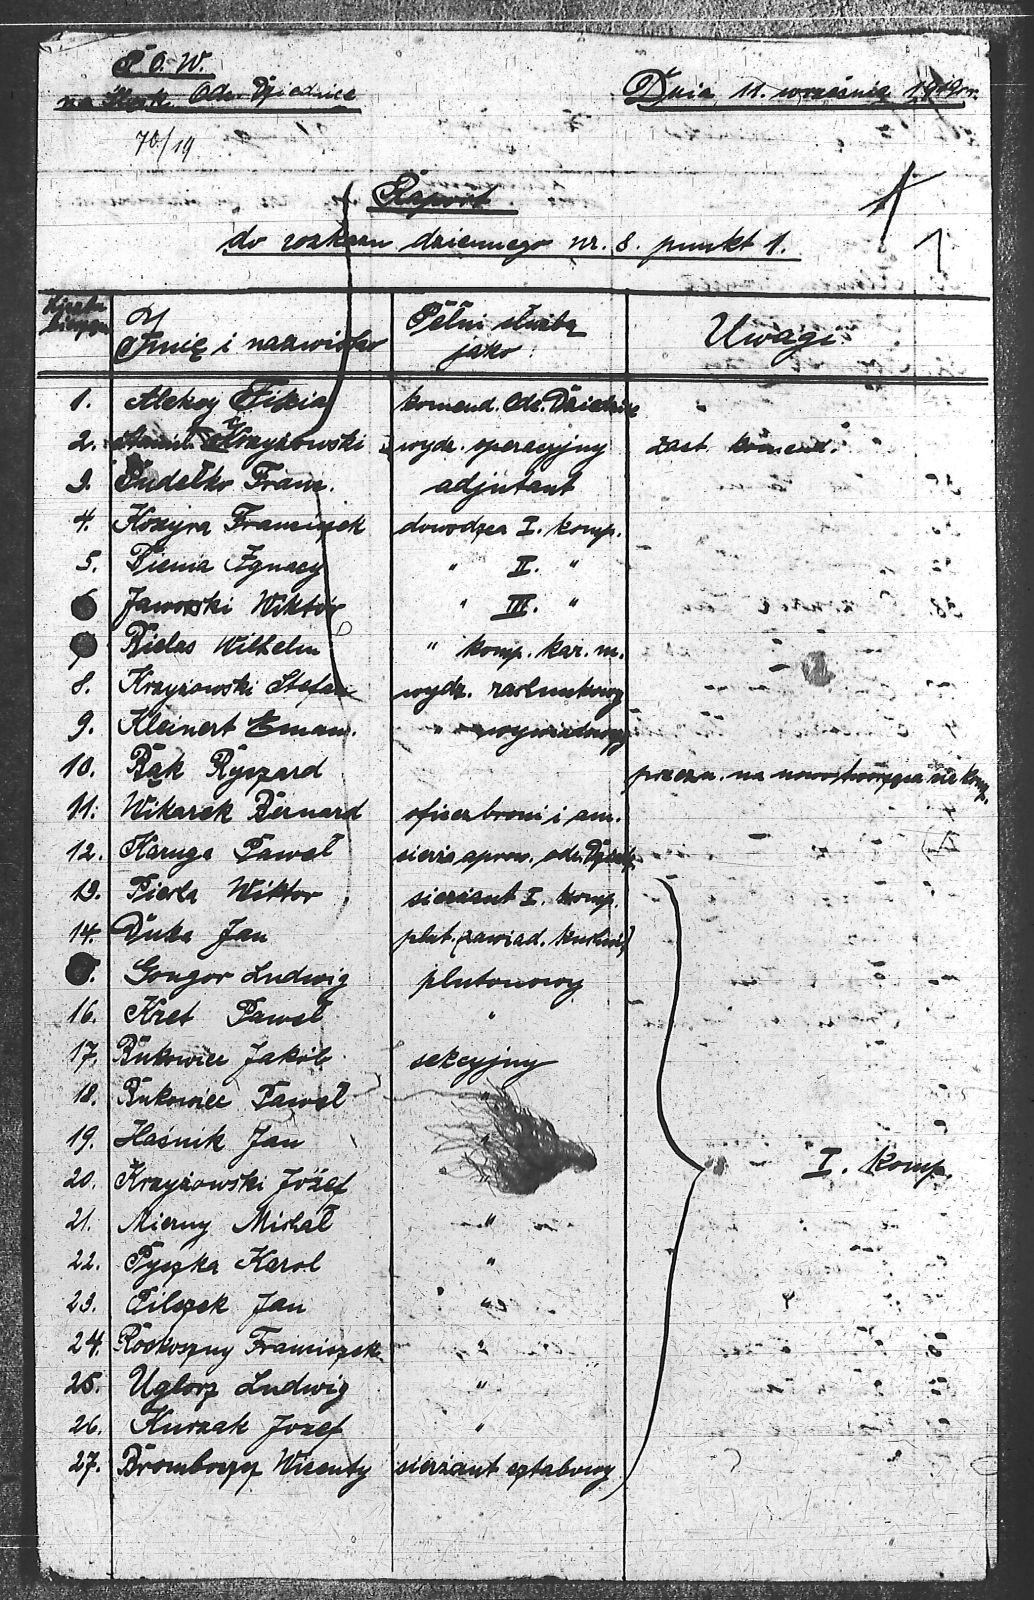 P.O.W.
na Śląsk. Odc. Dziedzice
Dnia 11. września 1919r.
70/19
1
Raport
do rozkazu dziennego nr. 8. punkt 1.
Liczba bieżąca
Imię i nazwisko
Pełni służbę jako:
Uwagi
1. Aleksy Fizia komend. Odc. Dziedzice
2. Krzyżowski wydz. operacyjny zast. komend.
3. Pudełko Franc. adjutant
4. Kozyra Franciszek dowódzca I. komp.
5. Piema Ignacy " II. "
6 Jaworski Wiktór " III. "
7 Bielas Wilhelm " komp. kar. m.
8. Krzyżowski Stefan wydz. rachunkowy
9. Kleinert Eman. " wywiadowczy
10. Bąk Ryszard przezn. na nowotworzącą się komp.
11. Wikarek Bernard oficer broni i am.
12. Karuga Paweł sierż. aprow. odc. Dziedz.
13. Pierla Wiktor sierżant I. komp.
14. Duka Jan plut. (zawiad. kuchni)
Gongor Ludwig plutonowy
16. Kret Paweł "
17. Bukowiec Jakób sekcyjny
18. Bukowiec Paweł "
19. Haśnik Jan
20. Krzyżowski Józef
I. komp.
21. Mierny Michał "
22. Pyszka Karol "
23. Pilszek Jan "
24. Roskoszny Franciszek "
25. Uglorz Ludwig "
26. Kurzak Jozef "
27. Bromboszcz Wicenty sierżant sztabowy